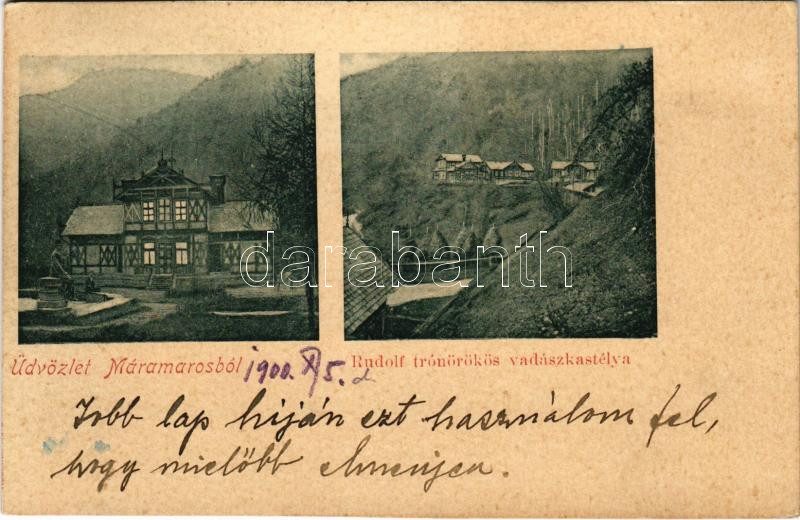 darabanth
Üdvözlet Máramarosból 1900. X/5.
Rudolf trónörökös vadászkastélya
Jobb lap hiján ezt használom fel,
hogy mielőbb elmenjen.